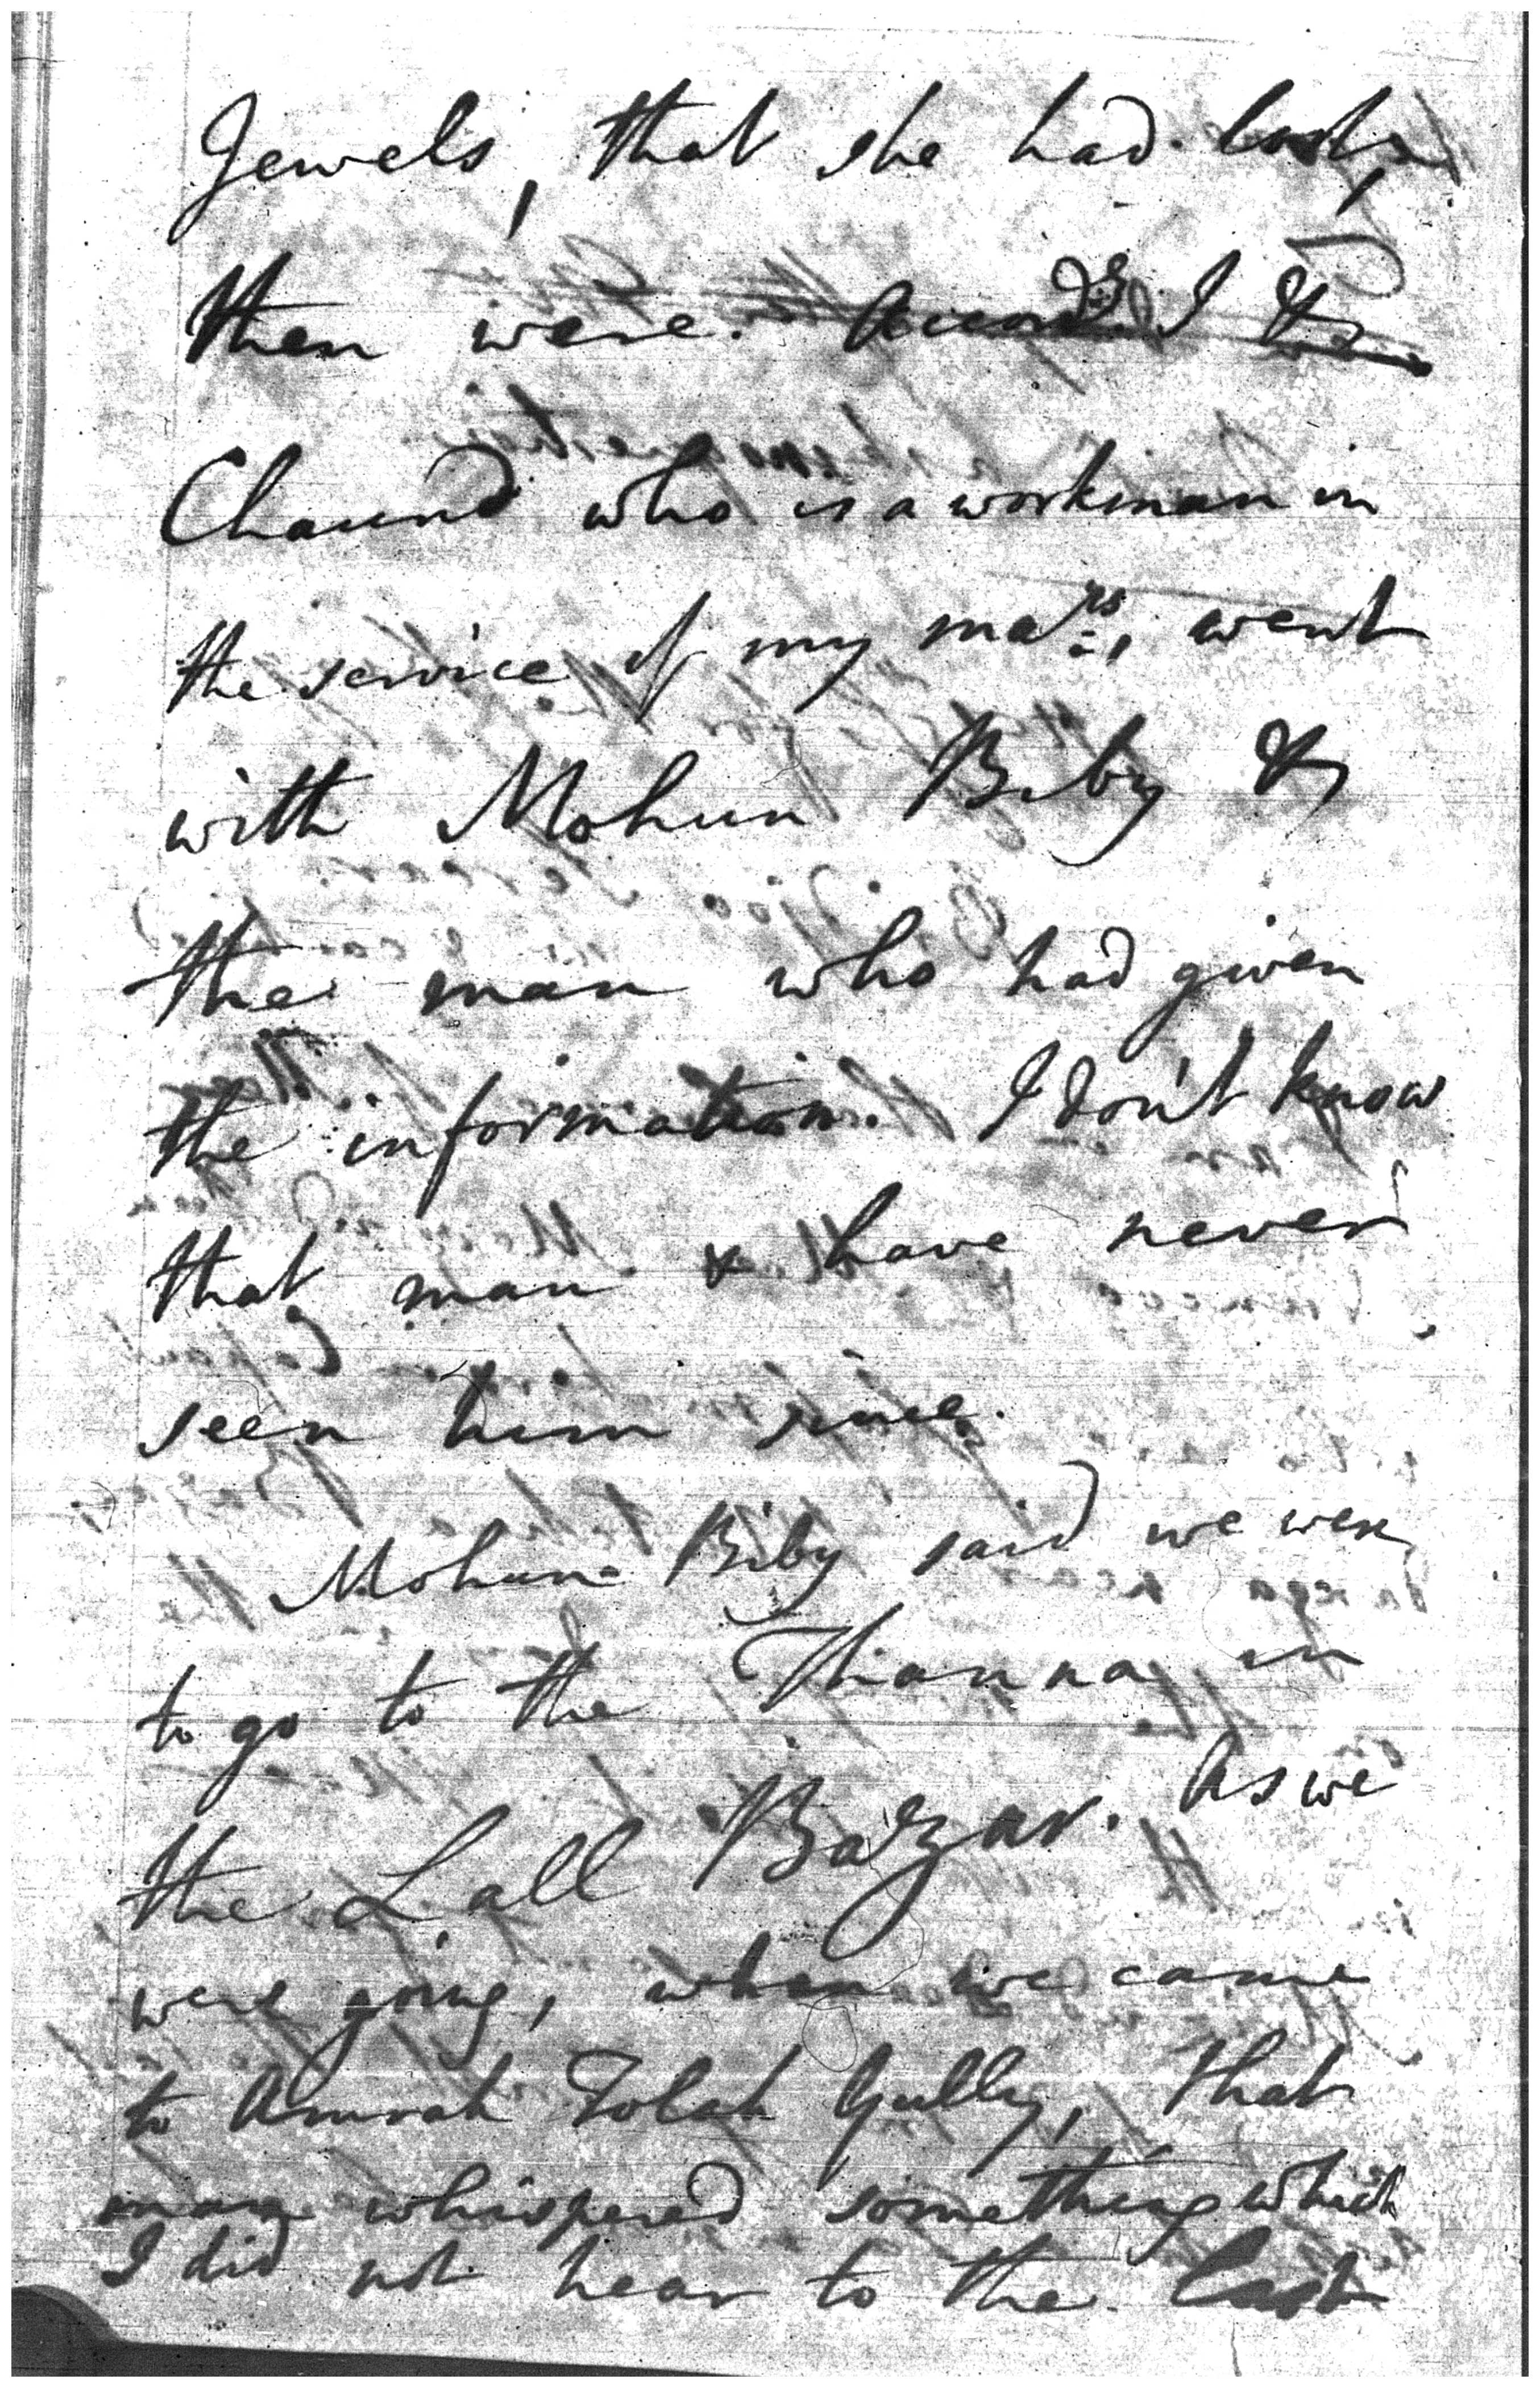 Jewels, that she had lost,
then were. Accordg. I &
Chaund who is a workman in
the service of my mars, went
with Mohun Biby &
the man who had given
the information. I don't know
that man & have never
seen him since.
Mohun Biby said we were
to go to the Thanna in
the Lall Bazar. As we
were going, when we came
to Amrah Tolah Gully, that
man whispered something which
I did not hear to the Cast